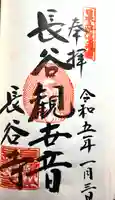 奉拝
令和五年一月三日
長谷観世音
長谷寺